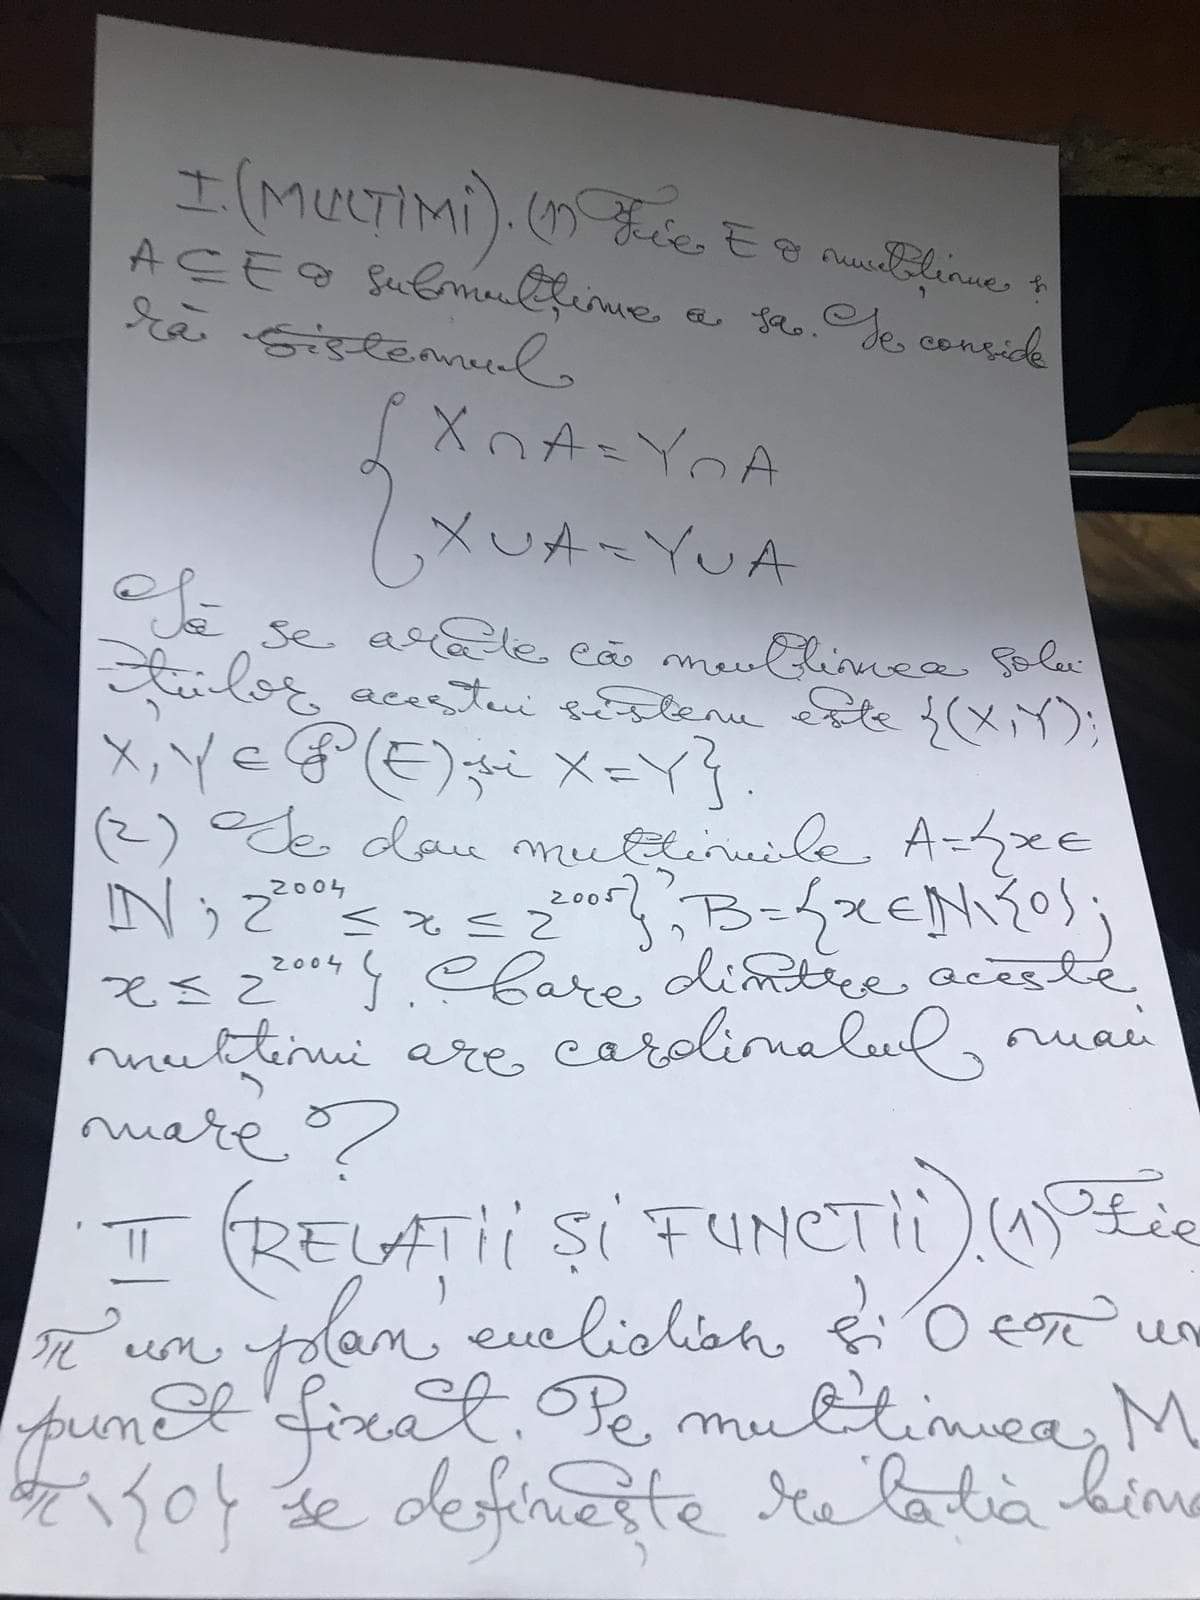 I. (MULȚIMI). (1) Fie E o mulțime și
A ⊆ E o submulțime a sa. Se conside
ră sistemul
{ X ∩ A = Y ∩ A
X ∪ A = Y ∪ A
Să se arate că mulțimea solu
țiilor acestui sistem este {(X,Y);
X, Y ∈ P(E) și X = Y}.
(2) Se dau mulțimile A = {x ∈
ℕ; 2^2004 ≤ x ≤ 2^2005}, B = {x ∈ ℕ\{0};
x ≤ 2^2004}. Care dintre aceste
mulțimi are cardinalul mai
mare?
II (RELAȚII ȘI FUNCȚII). (1) Fie
π un plan euclidian și O ∈ π un
punct fixat. Pe mulțimea M
π\{O} se definește relația bina